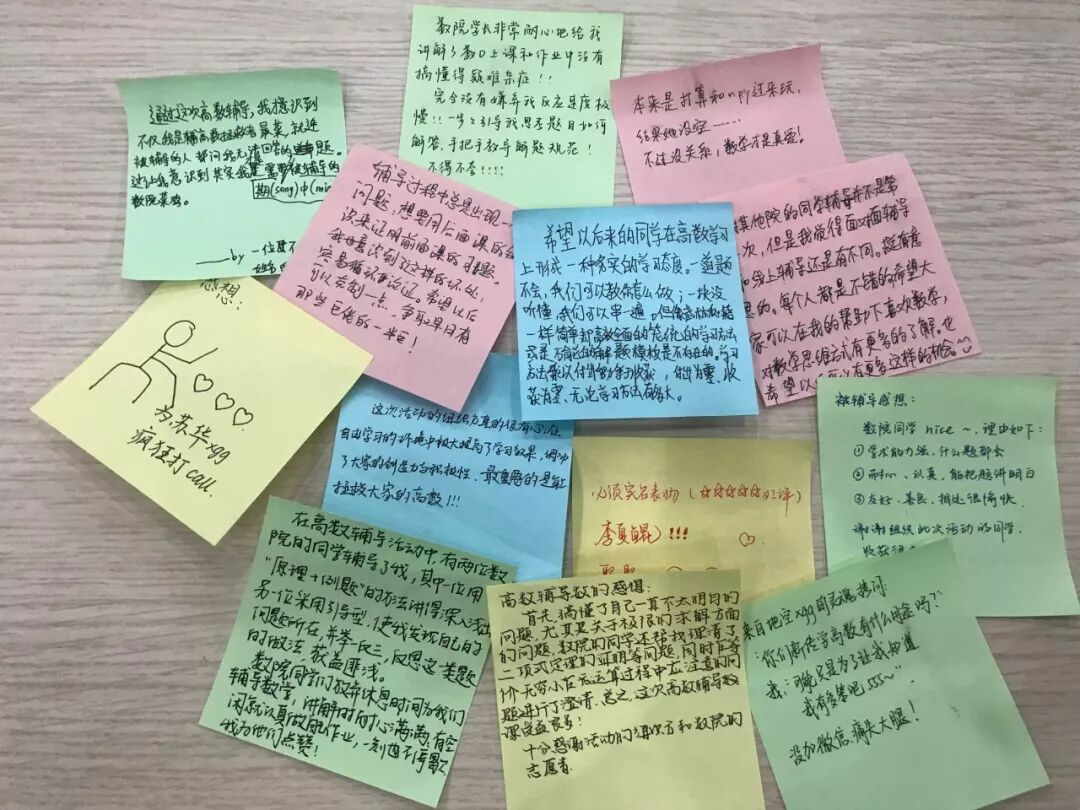 通过这次高数辅导，我意识到
不仅我是辅高数拯救者最菜，就连
被辅导的人都问我无法回答的问题。
这让我意识到其实我是需要被辅导的
数院菜鸡。
期(song)中(min
——by 一位
数院学长非常耐心地给我
讲解了数D上课和作业中没有
搞懂得疑难杂症！！
完全没有嫌弃我反应速度极
慢！！一步步引导我思考题目如何
解答，手把手教导解题规范！
不得不夸！！！！
本来是打算和npy过来玩，
结果她没空……
不过没关系，数学才是真爱！
辅导过程中总是出现一
问题：想要用后面课的
次来证明前面课的习题。
我也意识到了这样的坏处，
容易循环论证。希望以后
可以克制一点，争取早日有
那些巨佬的一半巨！
希望以后来的同学在高数学习
上形成一种务实的学习态度。一道题
不会，我们可以教你怎么做；一块没
听懂，我们可以串一遍。但像武林秘籍
一样简单却高效全面的笼统的学习方法
或是不能的解题模板是不存在的。学习
方法乘以付出等于学习收获，付出为零，收
获为零，无论学习方法有多大。
其他院的同学辅导并不是第
次，但是我觉得面对面辅导
和线上辅导还是有不同。挺有意
思的。每个人都是不错的希望大
家可以在我的帮助下喜欢数学，
对数学思维方式有更多的了解。也
希望以后可以有更多这样的机会～
感想：
为苏华xgg
疯狂打call.
这次活动的组织方真的很有心，在
自由学习的环境中极大提高了学习效果，调动
了大家的创造力与积极性，最重要的是能
拯救大家的高数！！！
必须实名表扬（☆☆☆☆☆好评）
李夏鲲）！！！
被辅导感想：
数院同学 nice ～，理由如下：
①学术能力强，什么题都会
②耐心、认真，能把题讲明白
③友好、善良、相处很愉快.
谢谢组织此次活动的同学.
在高数辅导活动中，有两位数
院的同学辅导了我，其中一位用
“原理+例题”的方法讲得深入浅出
另一位采用引导型，使我发现自己的
问题所在，并举一反三，反思这类题
的做法，获益匪浅。
数院同学们放弃休息时间为我们
辅导数学，讲解时耐心满满，有空
闲就认真做肥作业，一刻也不停歇
我为他们点赞！
高数辅导数的感想：
首先，搞懂了自己一直不太明白的
问题，尤其是关于极限的求解方面
的问题，数院的同学还帮我理清了
二项式定理的证明等问题，同时在等
价无穷小在应运算过程中应注意的问
题进行了澄清。总之，这次高数辅导数
课受益良多！
十分感谢活动的组织方和数院的
志愿者.
来自地空xgg的灵魂拷问：
：你们都法学高数有什么用途吗？
我：可能只是为了让我知道
我有多笨吧 555～
没加微信，痛失大腿！